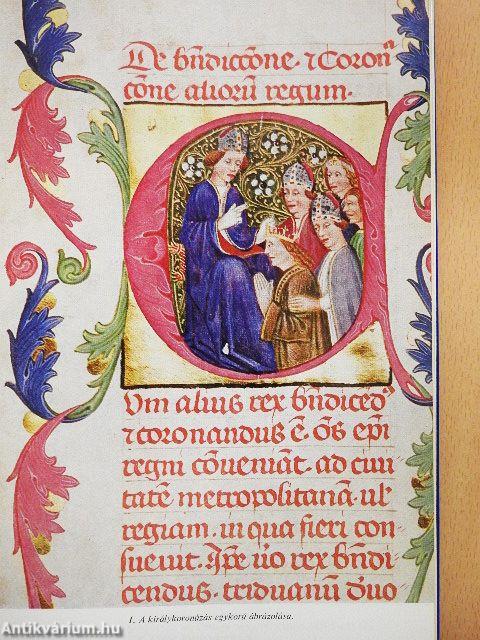 De bn̄diccōne· ⁊ Coronᵃ
cōne alioru̅ regum·
Vm aliuis rex bn̄diced᷒
⁊ coronandus ē· oēs epi̅
regni cōveniāt· ad ciui
tatē metropolitanā· ul'
regiam· in qua fieri con
sueuit· Ip̄e u̇o rex bn̄di
cendus· triduanū d'uo
1. A királykoronázás egykorú ábrázolása.
Antikvárium.hu